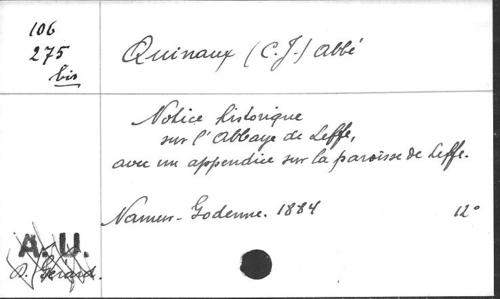 106
275
bis
Quinaux (C.J.) Abbé
Notice historique
sur l'Abbaye de Leffe,
avec un appendice sur la paroisse de Leffe.
Namur-Godenne. 1884
12°
A. U.
D. Gérard.